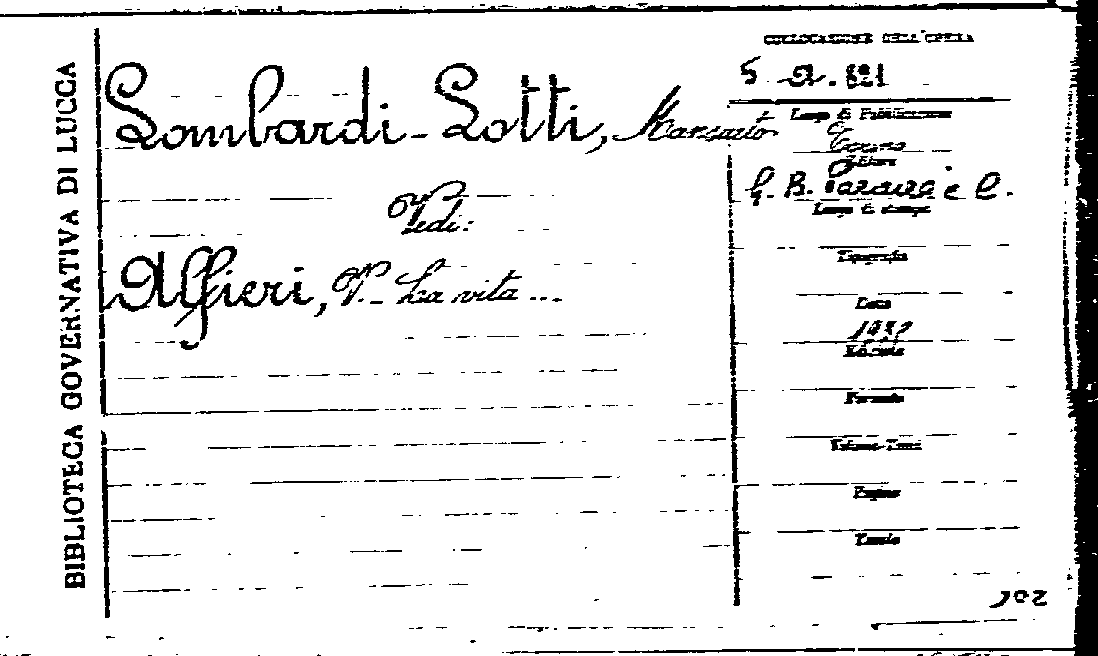 BIBLIOTECA GOVERNATIVA DI LUCCA
Lombardi-Lotti, Mansueto
Vedi:
Alfieri, V.- La vita ...
COLLOCAZIONE DELL'OPERA
5 A. 821
Luogo di Pubblicazione
Torino
Editore
G. B. Paravia e C.
Luogo di stampa
Tipografia
Data
Edizione
Formato
Volume-Tomi
Pagine
Tavole